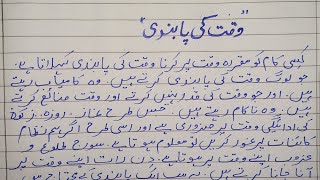 "وقت کی پابندی"
کسی کام کو مقررہ وقت پر کرنا وقت کی پابندی کہلاتا ہے۔
جو لوگ وقت کی پابندی کرتے ہیں۔ وہ کامیاب رہتے
ہیں۔ اور جو وقت کی قدر نہیں کرتے اور وقت ضائع کرتے
ہیں۔ وہ ناکام رہتے ہیں۔ جس طرح نماز، روزہ، زکوٰۃ
کی ادائیگی وقت پر ضروری ہے اور اسی طرح اگر ہم نظام
کائنات پر غور کریں تو معلوم ہوتا ہے۔ سورج طلوع و
غروب اپنے وقت پر ہوتا ہے۔ دن رات اپنے وقت پر
آتا جاتا کرتے ہیں۔